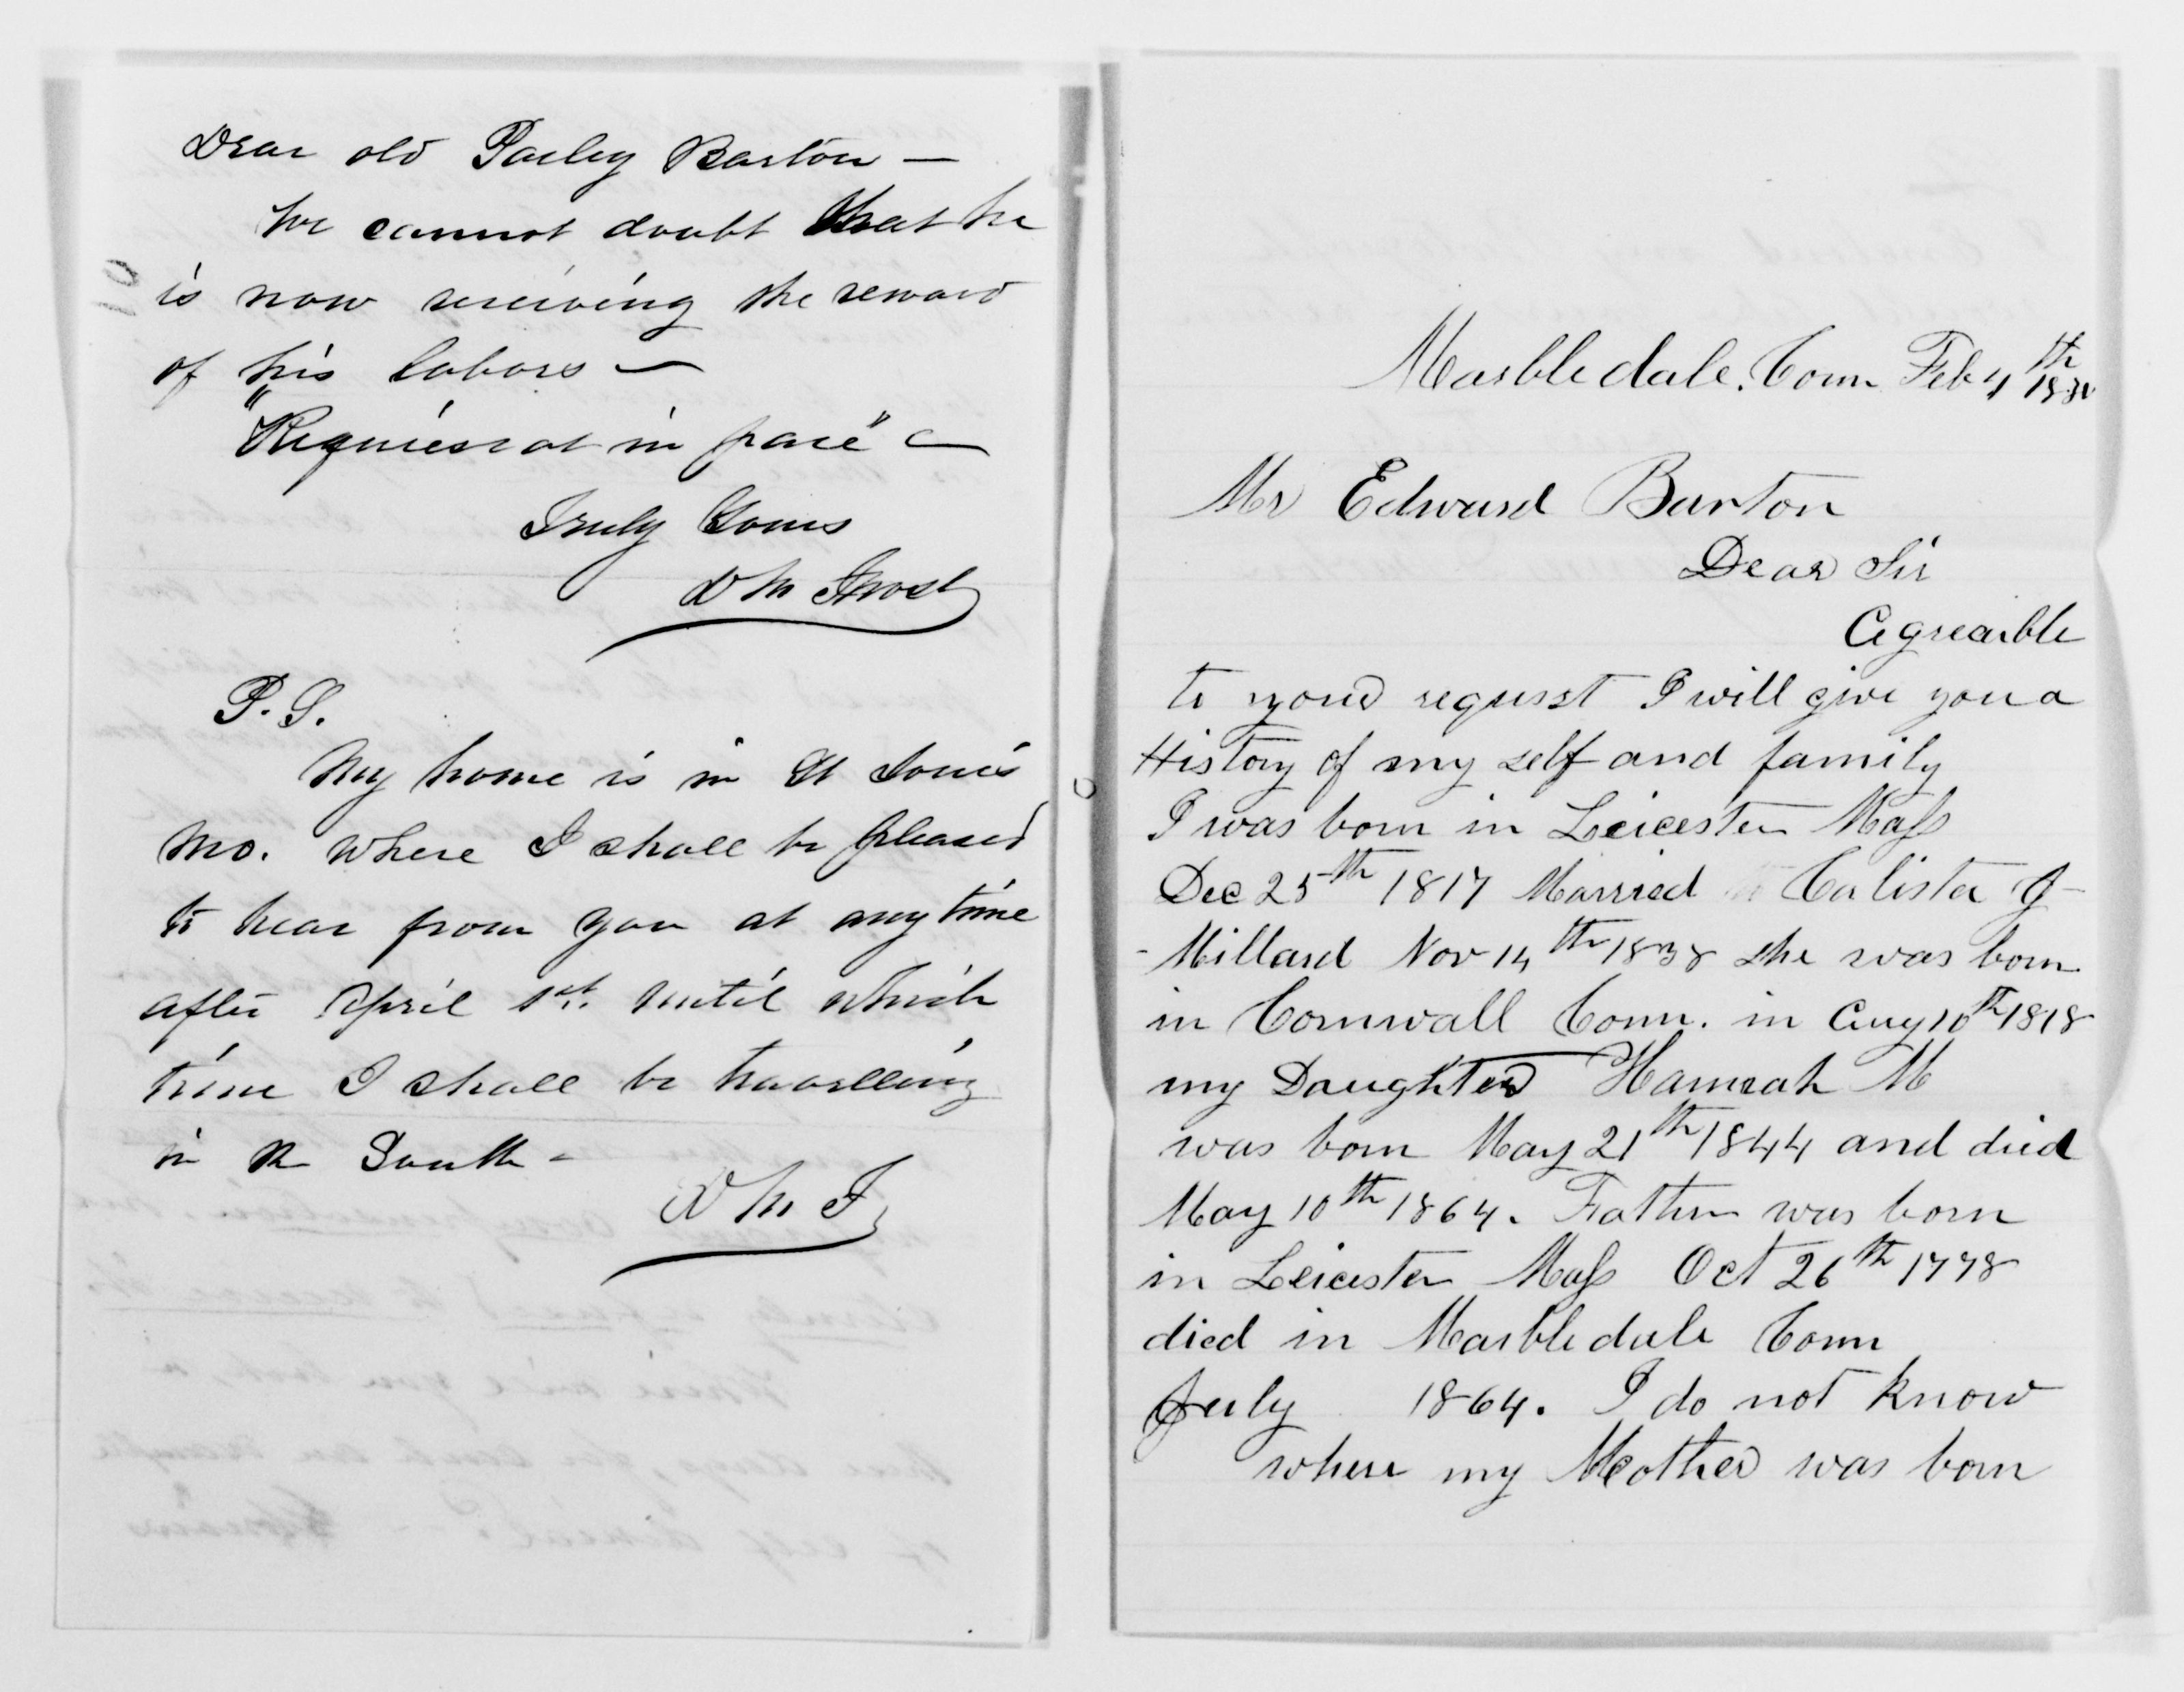 Dear old Parley Barton —
We cannot doubt that he
is now receiving the reward
of his labors —
"Requiescat in pace" —
Truly Yours
D M Frost
P.S.
My home is in St Louis
Mo. where I shall be pleased
to hear from you at any time
after April 1st. until which
time I shall be travelling
in the South -
D M F
Marbledale. Conn Feb 4th
Mr Edward Barton
Dear Sir
Agreaible
to your request I will give you a
History of my self and family
I was born in Leicester Mass
Dec 25th 1817 Married Calista J
- Millard Nov 14th 1838 she was born
in Cornwall Conn. in Aug 10th 1818
my Daughter Hannah M
was born May 21th 1844 and died
May 10th 1864. Father was born
in Leicester Mass Oct 26th 1778
died in Marbledale Conn
July 1864. I do not know
where my Mother was born